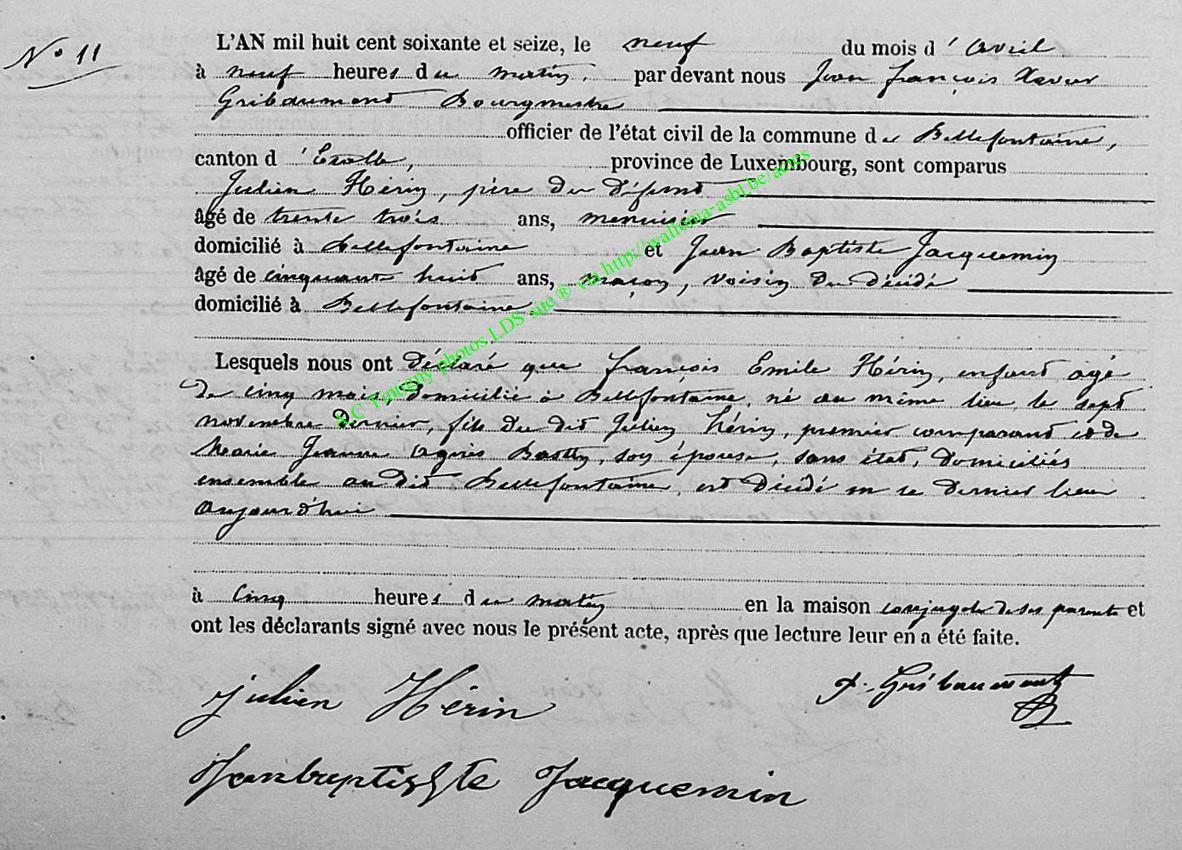 N° 11
L'AN mil huit cent soixante et seize, le neuf du mois d'avril
à neuf heures du matin, par devant nous Jean François Xavier
Gribaumont Bourgmestre
officier de l'état civil de la commune de Bellefontaine,
canton d'Etalle, province de Luxembourg, sont comparus
Julien Hérin, père du défunt
âgé de trente trois ans, menuisier
domicilié à Bellefontaine et Jean Baptiste Jacquemin
âgé de cinquante huit ans, maçon, voisin du décédé
domicilié à Bellefontaine
Lesquels nous ont déclaré que François Emile Hérin, enfant âgé
de cinq mois, domicilié à Bellefontaine, né au même lieu le sept
novembre dernier, fils du dit Julien Hérin, premier comparant et de
Marie Jeanne Agnès, son épouse, sans état, domiciliés
ensemble au dit Bellefontaine, est décédé en ce dernier lieu
aujourd'hui
à cinq heures du matin en la maison conjugale de ses parents et
ont les déclarants signé avec nous le présent acte, après que lecture leur en a été faite.
Julien Hérin
Gribaumont
Janbaptisste Jacquemin
S.C Tintigny photos LDS site ® via http://wallonia-asbl.be/actes